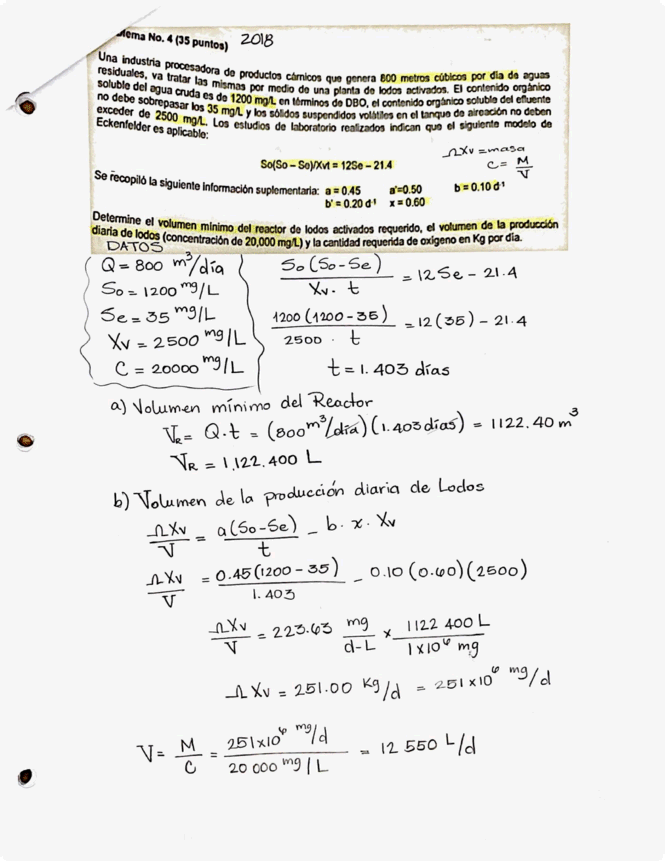 lema No. 4 (35 puntos) 2018
Una industria procesadora de productos cárnicos que genera 800 metros cúbicos por día de aguas
residuales, va tratar las mismas por medio de una planta de lodos activados. El contenido orgánico
soluble del agua cruda es de 1200 mg/L en términos de DBO, el contenido orgánico soluble del efluente
no debe sobrepasar los 35 mg/L y los sólidos suspendidos volátiles en el tanque de aireación no deben
exceder de 2500 mg/L. Los estudios de laboratorio realizados indican que el siguiente modelo de
Eckenfelder es aplicable:
ΩXv = masa
C = M/V
So(So – Se)/Xvt = 12Se – 21.4
Se recopiló la siguiente información suplementaria: a = 0.45 a'=0.50 b = 0.10 d⁻¹
b' = 0.20 d⁻¹ x = 0.60
Determine el volumen mínimo del reactor de lodos activados requerido, el volumen de la producción
diaria de lodos (concentración de 20,000 mg/L) y la cantidad requerida de oxígeno en Kg por día.
DATOS
Q = 800 m³/día
So = 1200 mg/L
Se = 35 mg/L
Xv = 2500 mg/L
C = 20000 mg/L
So (So - Se) / Xv . t = 12 Se - 21.4
1200 (1200 - 35) / 2500 . t = 12 (35) - 21.4
t = 1.403 días
a) Volumen mínimo del Reactor
VR = Q.t = (800 m³/día) (1.403 días) = 1122.40 m³
VR = 1,122.400 L
b) Volumen de la producción diaria de Lodos
ΩXv / V = a (So - Se) / t - b . x . Xv
ΩXv / V = 0.45 (1200 - 35) / 1.403 - 0.10 (0.60) (2500)
ΩXv / V = 223.63 mg / d-L x 1122 400 L / 1x10⁶ mg
ΩXv = 251.00 Kg/d = 251x10⁶ mg/d
V = M / C = 251x10⁶ mg/d / 20 000 mg/L = 12 550 L/d